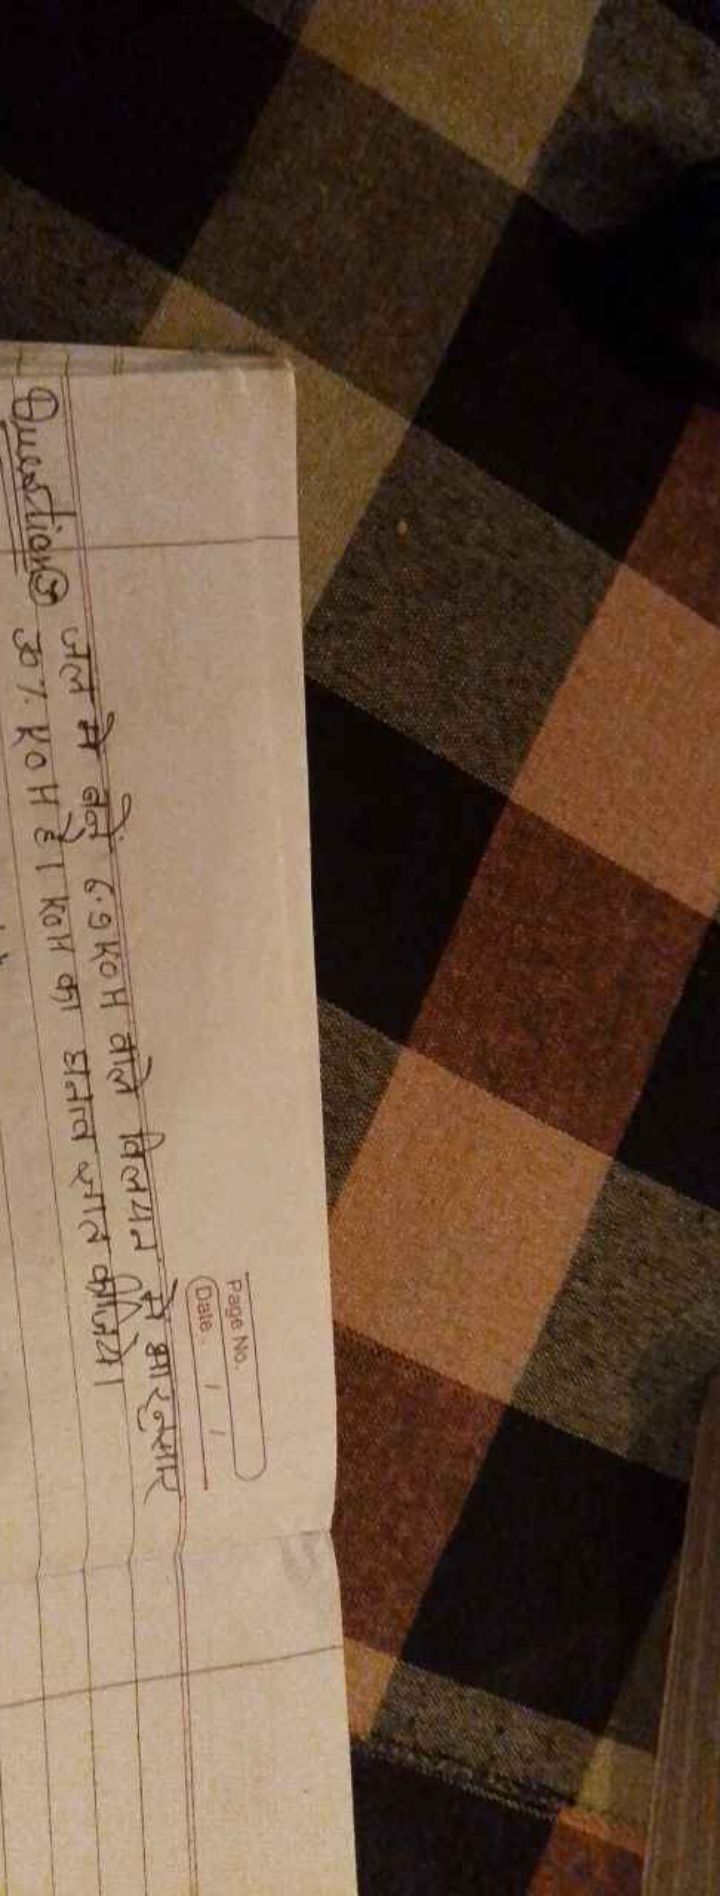 Page No.
Date. / /
जल मे बने 6.9 KOH वाले विलयन मे भारनुसार
Question③ 30% KOH है। KOH का घनत्व ज्ञात कीजिये।